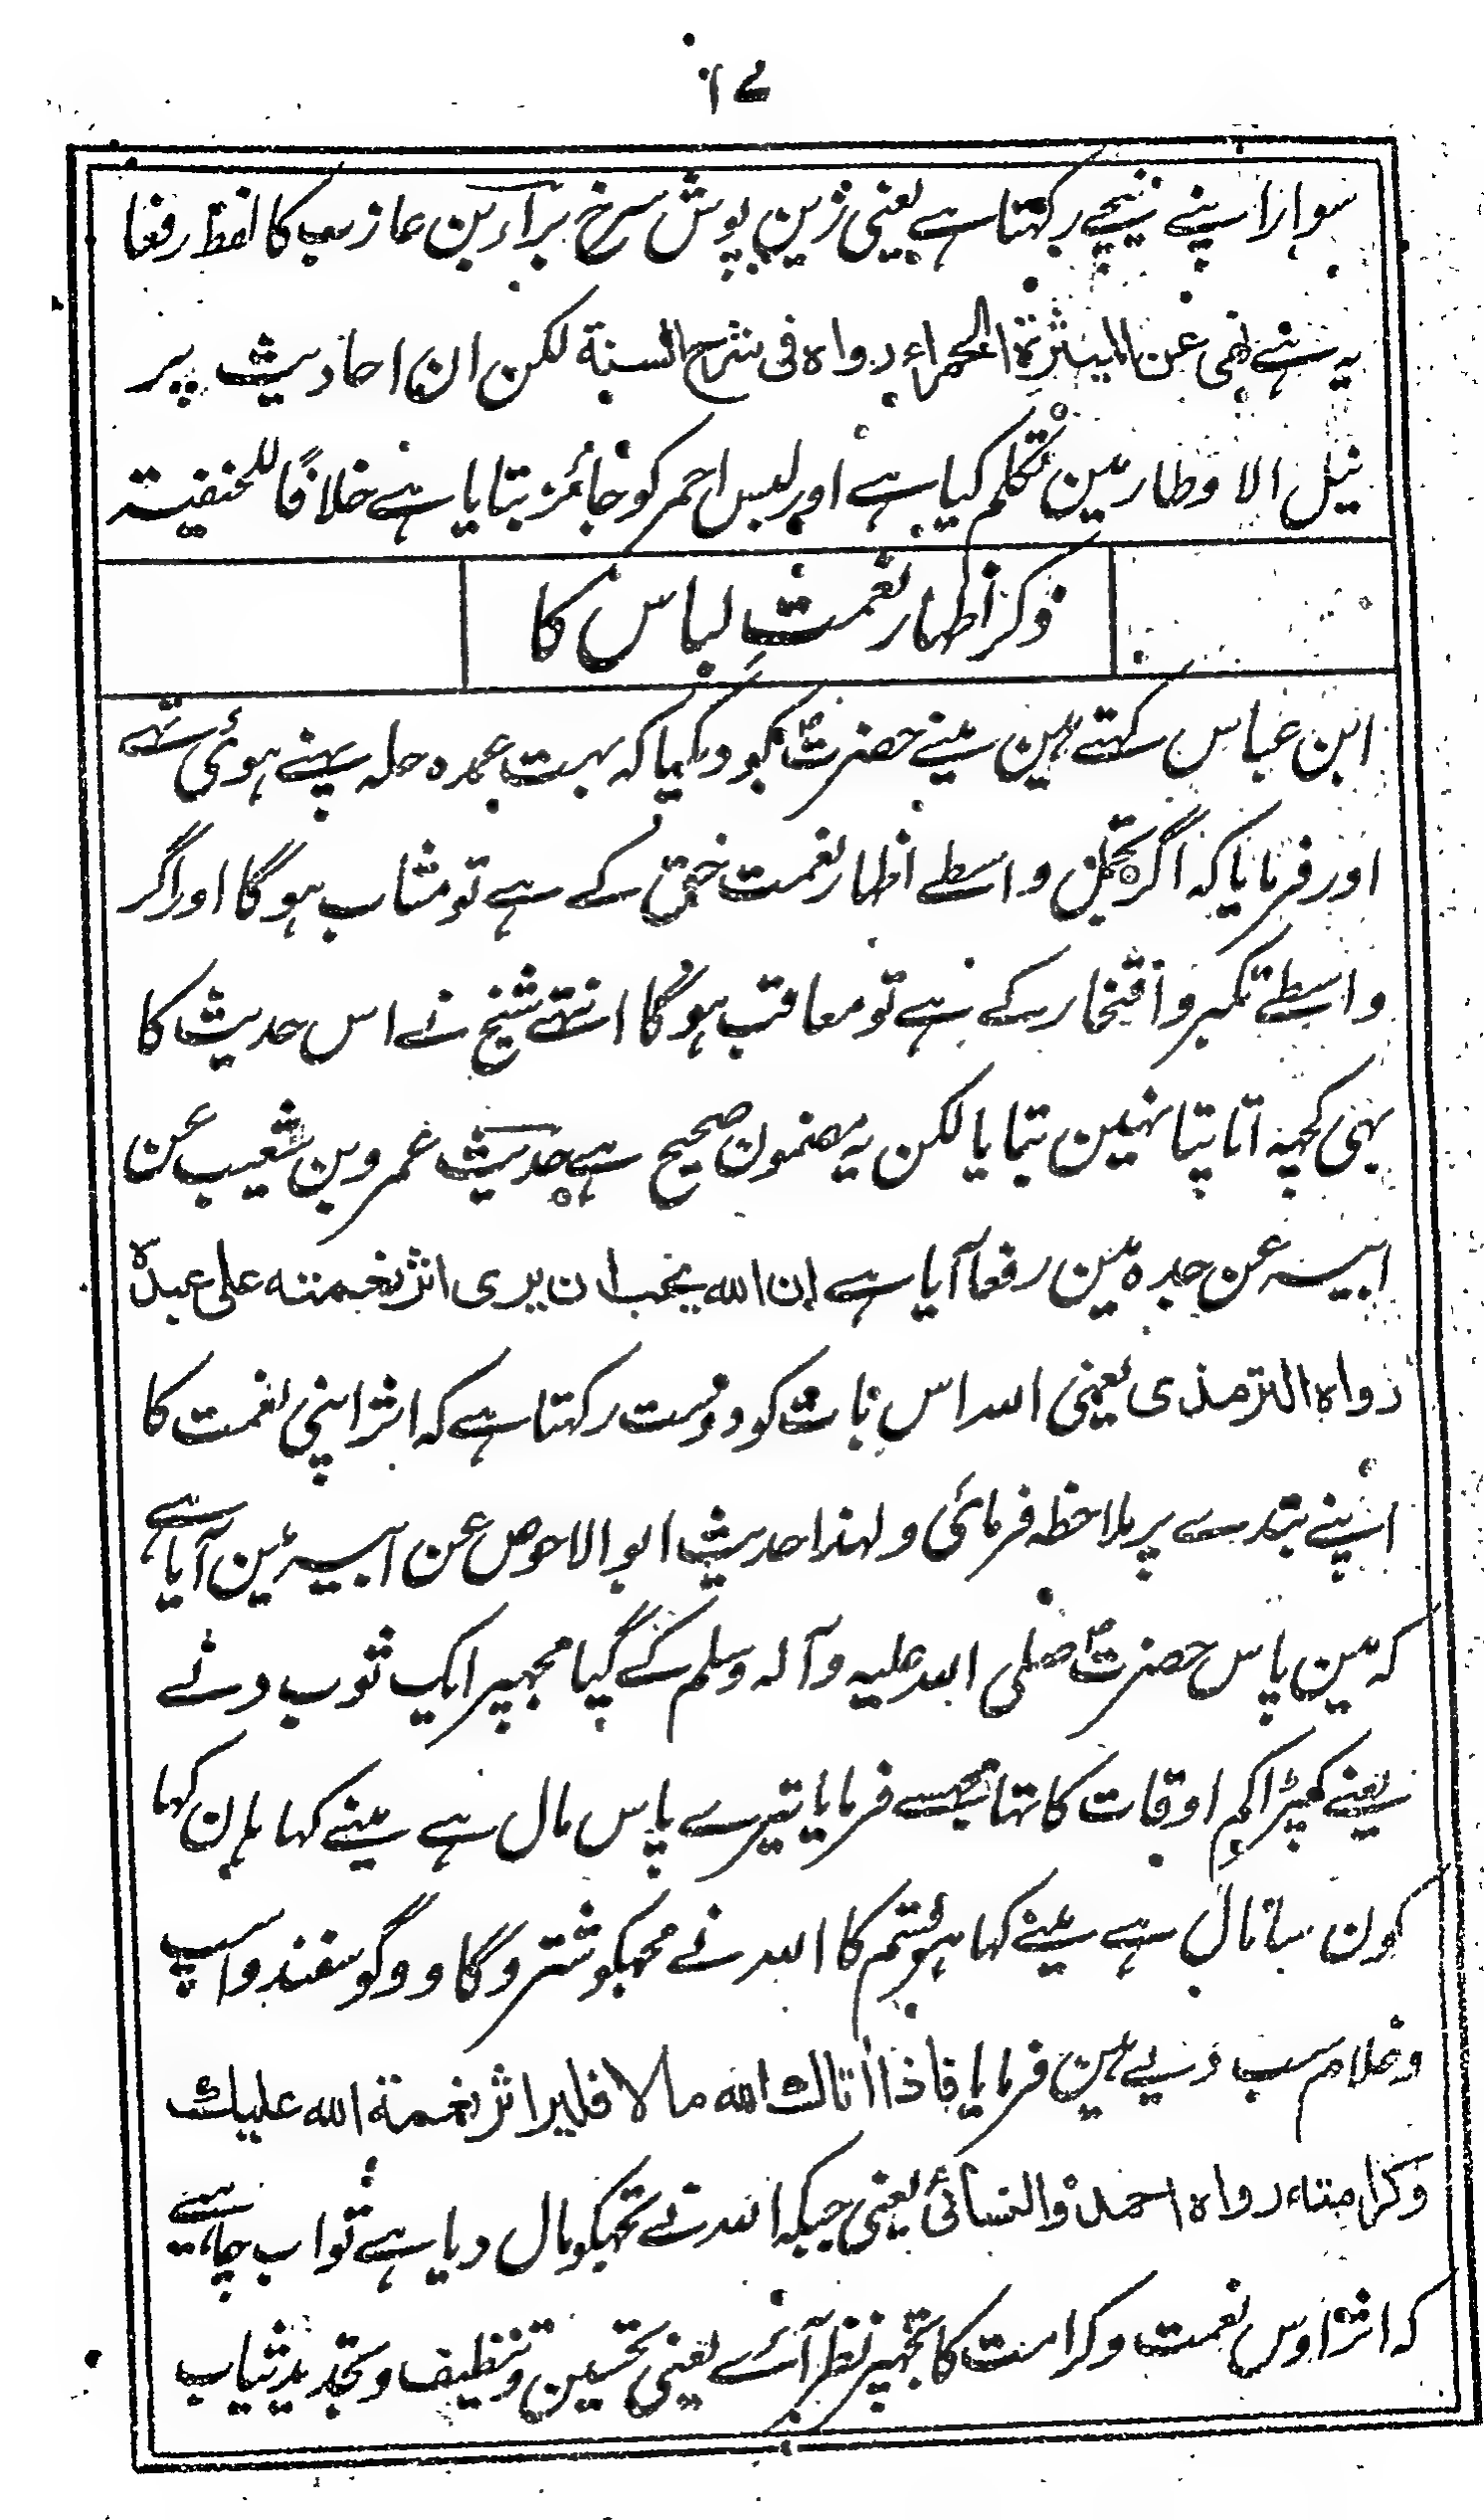 سوار اپنے نیچے رکہتا ہے یعنی زین پوش سرخ براء بن عازب کا لفظ رفعا
یہ ہے نهى عن الميثرة الحمراء رواه فى شرح السنة لکن ان احادیث پر
نیل الاوطار مین تکلم کیا ہے اور لبس احمر کو جائز بتایا ہے خلافاً للحنفیۃ
ذکر اظہار نعمتِ لباس کا
ابن عباس کہتے ہین مینے حضرتؐ کو دیکہا کہ بہت عمدہ حلہ پہنے ہوئی تہے
اور فرمایا کہ اگر تجمل واسطے اظہار نعمت حق کے ہے تو مثاب ہوگا اور اگر
واسطے تکبر و افتخار کے ہے تو معاقب ہوگا انتہے شیخ نے اس حدیث کا
بہی کچہہ اتا پتا نہین بتایا لکن یہ مضمون صحیح ہے حدیث عمرو بن شعیب عن
ابیہ عن جدہ مین رفعا آیا ہے ان الله يحب ان يرى اثر نعمته على عبده
رواه الترمذى یعنی اللہ اس بات کو دوست رکہتا ہے کہ اثر اپنی نعمت کا
اپنے بندے پر ملاحظہ فرمائی ولہذا حدیث ابو الاحوص عن ابیہ مین آیا ہے
کہ مین پاس حضرتؐ صلی اللہ علیہ وآلہ وسلم کے گیا مجہپر ایک ثوب دون تہے
یعنے کپڑا کم اوقات کا تہا مجہسے فرمایا تیرے پاس مال ہے مینے کہا ہان کہا
کون سا مال ہے مینے کہا ہر قسم کا اللہ نے مجہکو شتر و گاو و گوسفند و اسپ
و غلام سب دیے ہین فرمایا فاذا اتاك الله مالا فلير اثر نعمة الله عليك
وكرامته رواه احمد والنسائى یعنی جبکہ اللہ نے تجہکو مال دیا ہے تو اب چاہیے
کہ اثر اوس نعمت و کرامت کا تجہپر نظر آئے یعنی تحسین و تنظیف و تجدید ثیاب